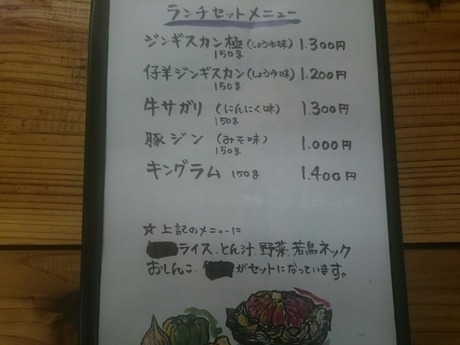 ランチセットメニュー
ジンギスカン極(しょうゆ味) 1.300円
150g
仔羊ジンギスカン(しょうゆ味) 1.200円
150g
牛サガリ (にんにく味) 1.300円
150g
豚ジン (みそ味) 1.000円
150g
キングラム 150g 1.400円
☆上記のメニューに
ライス.とん汁.野菜.若鳥ネック
おしんこ. がセットになっています。